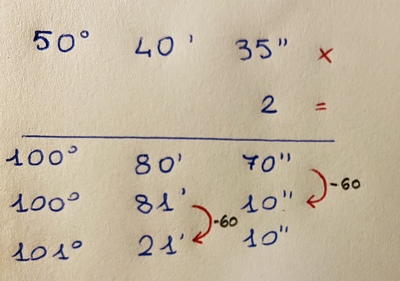 50° 40' 35" ×
2 =
100° 80' 70"
100° 81' 10" -60
101° 21' 10" -60